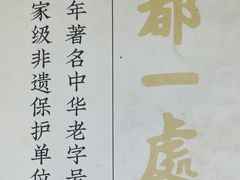 都一處
年著名中华老字号
家级非遗保护单位